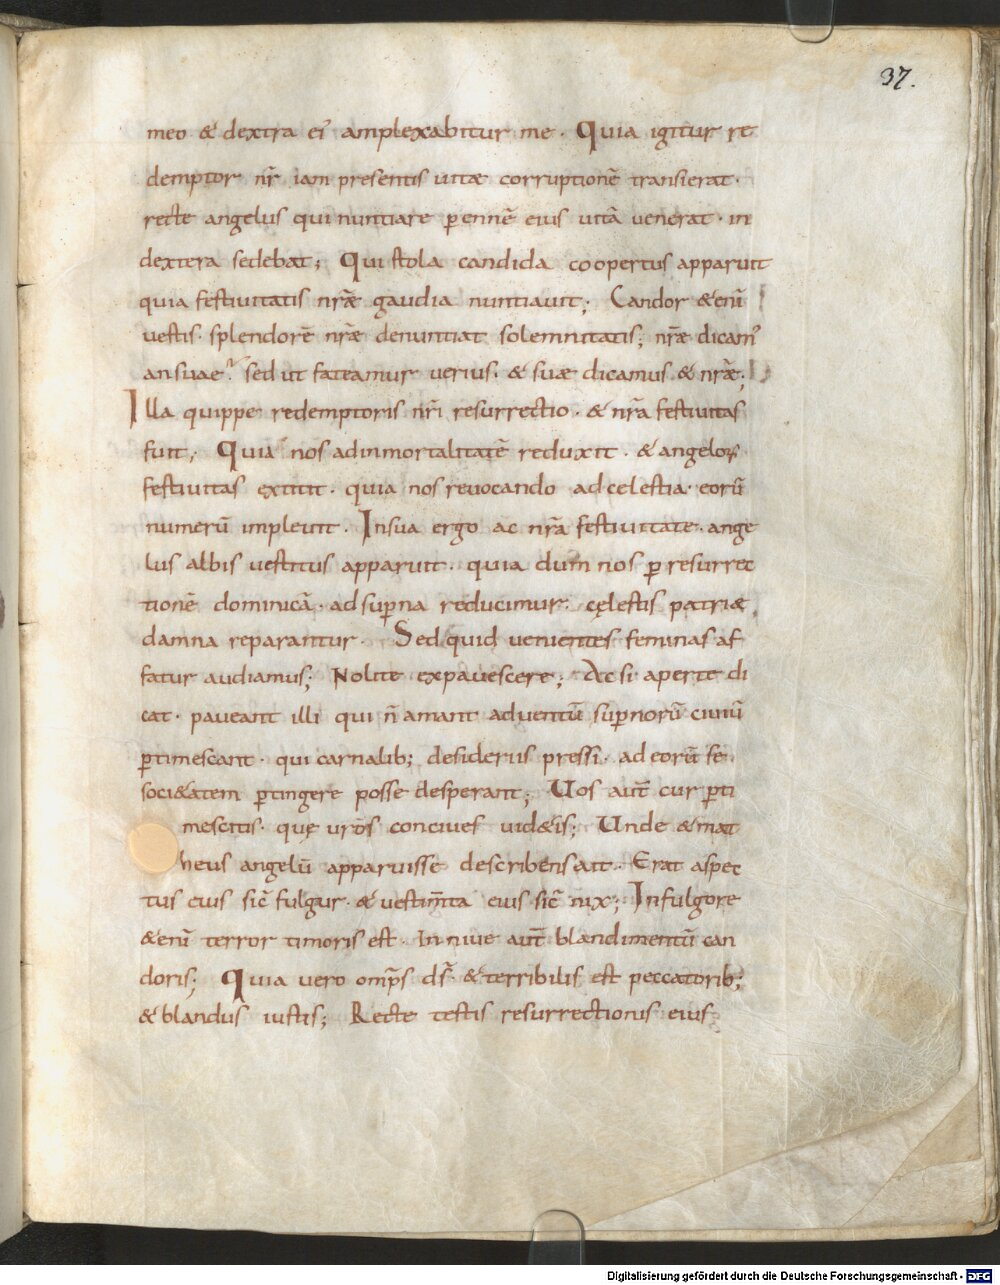 37.
meo & dextra ei᷒ amplexabitur me · Quia igitur re
demptor nr̄ iam presentis uitae corruptionē transierat ·
recte angelus qui nuntiare p̄ennē eius uitā uenerat · in
dextera sedebat; Qui stola candida coopertus apparuit
quia festiuitatis nr̄ae gaudia nuntiauit; Candor &enī
uestis · splendorē nr̄ae denuntiat solemnitatis; nr̄ae dicam᷒
an suae? sed ut fateamur uerius · & suae dicamus & nr̄ae;
Illa quippe redemptoris nr̄i resurrectio · & nr̄a festiuitas
fuit; Quia nos ad inmortalitatē reduxit · & angeloꝝ
festiuitas extitit · quia nos reuocando ad celestia · eorū
numerū impleuit · In sua ergo ac nr̄a festiuitate · ange
lus albis uestitus apparuit · quia dum nos p̄ resurrec
tionē dominicā · ad sup̄na reducimur · cęlestis patriae
damna reparantur · Sed quid uenientes feminas af
fatur audiamus; Nolite expauescere; Ac si aperte di
cat · paueant illi qui n̄ amant aduentū sup̄norū ciuiū
p̄timescant · qui carnalib; desideriis pressi · ad eorū se
soci&atem p̄tingere posse desperant; Uos aūt cur p̄ti
mescitis · quę ur̄os conciues uid&is; Unde & mat
heus angelū apparuisse describens ait · Erat aspec
tus eius sic̄ fulgur · & uestim̄ta eius sic̄ nix; In fulgore
&enī terror timoris est · In niue aūt blandimentū can
doris; Quia uero omp̄s ds̄ · & terribilis est peccatorib;
& blandus iustis; Recte testis resurrectionis eius
Digitalisierung gefördert durch die Deutsche Forschungsgemeinschaft - DFG